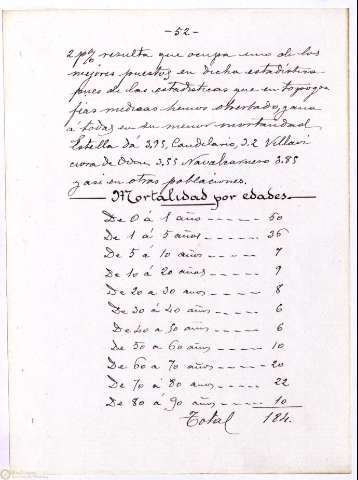 -52-
2 p% resulta que ocupa uno de los
mejores puestos en dicha estadistica
pues de las estadisticas que en topogra
fias medicas hemos observado, gana
á todas en su menor mortandad
Estella dá 3.95, Candelario, 3.2 Villavi
ciosa de Odon 3.55 Navalcarnero 3.85
y asi en otras poblaciones.
Mortalidad por edades
De 0 á 1 año ----- 50
De 1 á 5 años ---- 36
De 5 á 10 años --- 7
De 10 á 20 años --- 9
De 20 a 30 años --- 8
De 30 á 40 años --- 6
De 40 a 50 años --- 6
De 50 a 60 años ---- 10
De 60 a 70 años ---- 20
De 70 á 80 años ---- 22
De 80 á 90 años --- 10
Total 184.